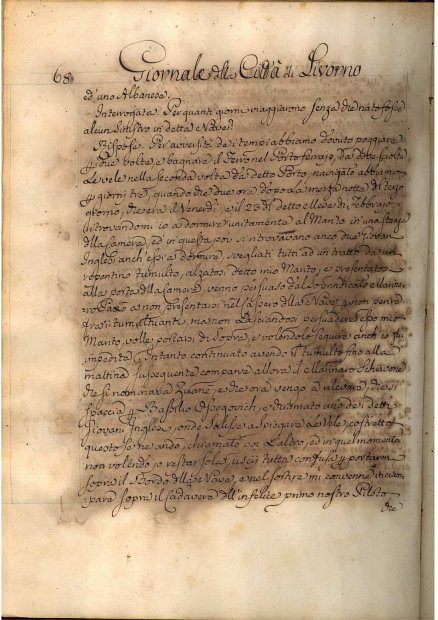 68 Giornale della Città di Livorno
ed' uno Albanese.
Interrogata. Per quanti giorni viaggiarono senza che nascesse
alcun sinistro in detta Nave?
Rispose. Per avversità de i tempi abbiamo dovuto poggiare
due volte, e bagnare il Ferro nel Porto ferrajo, da dove sciolte
le vele nella seconda volta da detto Porto, navigato abbiamo
giorni tre, quando che due ore dopo la mezza notte di terzo
giorno, che era il Venerdì, e il 23 del mese di Febbrajo
ritrovandomi io a dormire unitamente al Marito in una stanza
della camera, ed in questa poi si ritrovavano anco due Giovani
Inglesi anch'essi a dormire, svegliati tutti ad un tratto da un
repentino tumulto, alzatosi detto mio Marito, e presentatosi
alla porta della camera, venne persuaso dal
a non presentarsi nel Cassero della Nave, per non perire
fra i tumultuanti, ma non lasciandosi persuadere esso mio
Marito, volle portarsi di sopra, e volendolo seguire anch'io fui
impedita. Intanto continuato avendo il tumulto fino alla
mattina susseguente comparve allora il Marinaro Schiavone
che si nominava Zuane, e che ora vengo a rilevare, che si
spaccia per Basilio, e chiamato uno de i detti
Giovani Inglesi, onde salisse a spiegare le Vele, costretto
questo se ne andò, chiamato poi l'altro, ed in quel momento
non volendo io restar sola, uscij tutta confusa per portarmi
sopra il bordo della Nave, e nel sortire mi convenne inciam-
pare sopra il Cadavere dell' infelice primo nostro Piloto
che